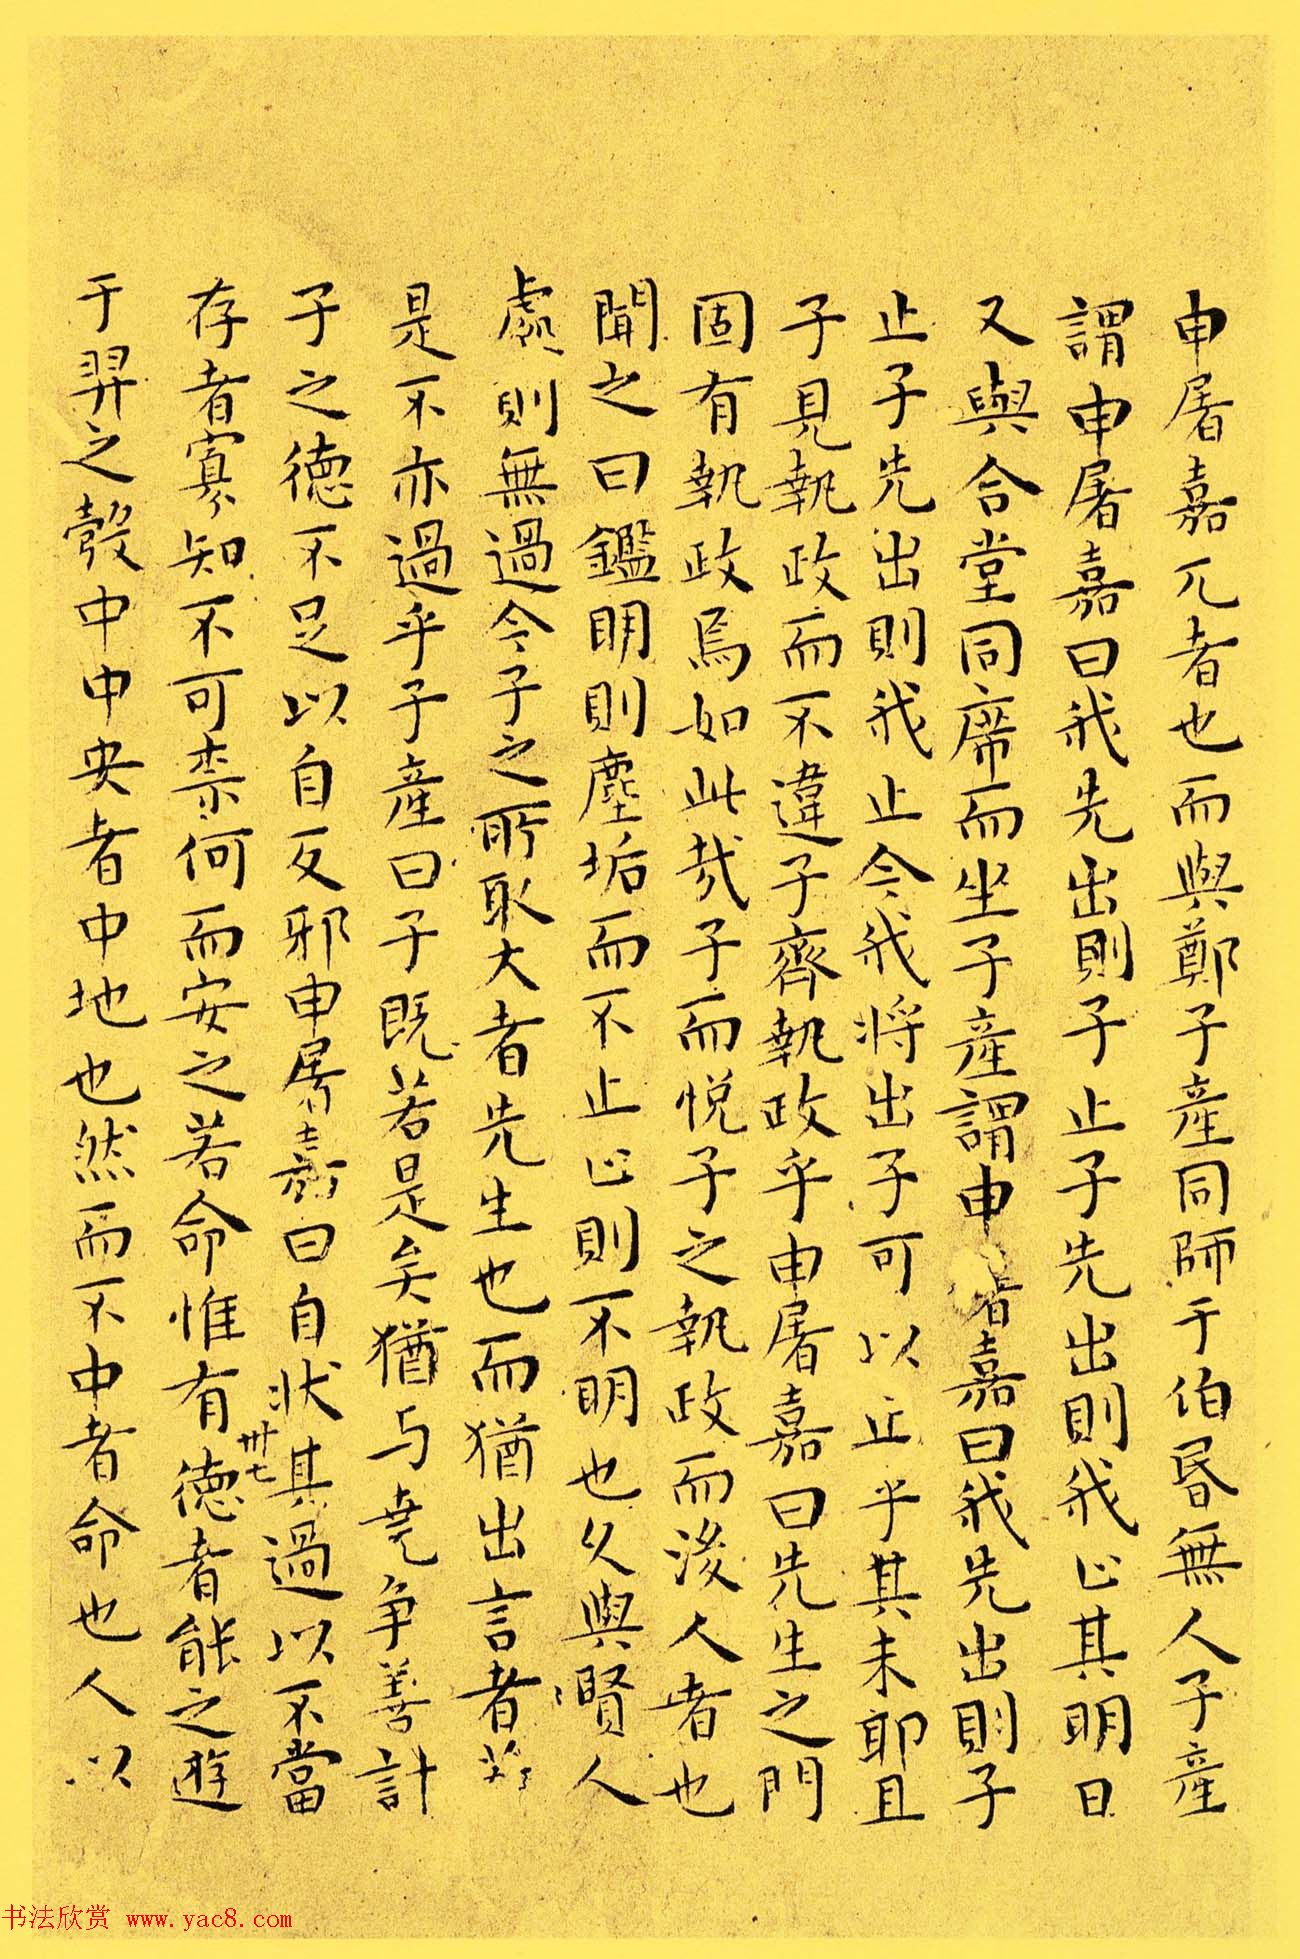 申屠嘉兀者也而與鄭子產同師于伯昏無人子產
謂申屠嘉曰我先出則子止子先出則我止其明日
又與合堂同席而坐子產謂申屠嘉曰我先出則子
止子先出則我止今我將出子可以止乎其未耶且
子見執政而不違子齊執政乎申屠嘉曰先生之門
固有執政焉如此哉子而悅子之執政而後人者也
聞之曰鑑明則塵垢而不止止則不明也久與賢人
處則無過今子之所取大者先生也而猶出言者若
是不亦過乎子產曰子既若是矣猶与堯爭善計
子之德不足以自反邪申屠嘉曰自状其過以不當
存者寡知不可柰何而安之若命惟有德者能之遊
于羿之彀中中央者中地也然而不中者命也人以
卌七
书法欣赏 www.yac8.com